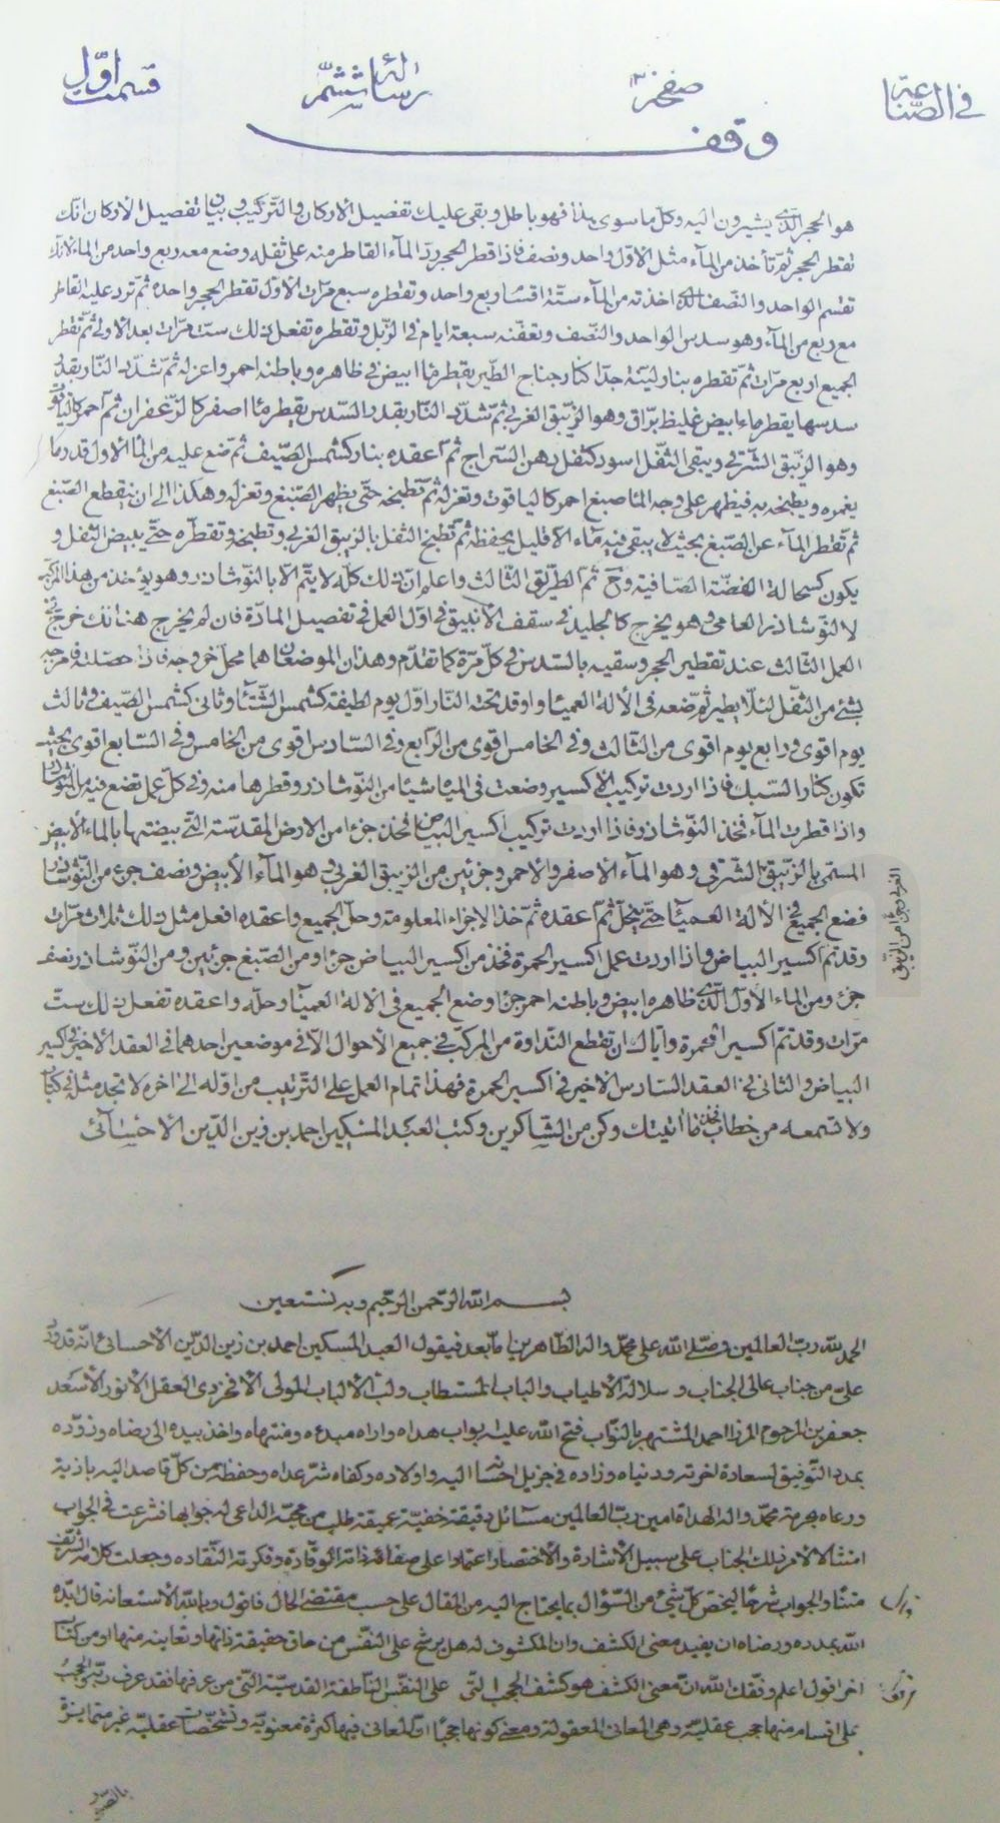 في الصناعة
صفحه ٣
رسالة ششم
قسمت اول
وقف
هو الحجر الذي يشيرون اليه وكل ما سوى هذا فهو باطل وبقى عليك تفصيل الاركان والتركيب وبيان تفصيل الاركان انك
تقطر الحجر ثم تأخذ من المآء مثل الاول واحد ونصف فاذا قطر الحجر رد المآء القاطر منه على ثفله وضع معه ربع واحد من الماء لانك
تقسم الواحد والنصف الذي اخذته من المآء ستة اقسام ربع واحد وتقطره سبع مرات الاول تقطر الحجر واحدة ثم ترد عليه القاطر
مع ربع من المآء وهو سدس الواحد والنصف وتعفنه سبعة ايام في الزبل وتقطره تفعل ذلك ست مرات بعد الاولى ثم تقطر
الجميع اربع مرات ثم تقطره بنار لينة جدا كنار جناح الطير يقطر ماء ابيض في ظاهره وباطنه احمر واعزله ثم شدد النار بقدر
سدسها يقطر ماء ابيض غليظ براق وهو الزيبق الغربي ثم شدد النار بقدر السدس يقطر ماء اصفر كالزعفران ثم احمر كالياقوت
وهو الزيبق الشرقي ويبقى الثفل اسود كثفل دهن السراج ثم اعقده بنار كشمس الصيف ثم ضع عليه من المآ الاول قدر ما
يغمره ويطبخه به فيظهر على وجه المآ صبغ احمر كالياقوت وتعزله ثم تطبخه حتى يظهر الصبغ وتعزله وهكذا الى ان ينقطع الصبغ
ثم تقطر المآء عن الصبغ بحيث لا يبقى فيه مآء الا قليل يحفظه ثم تطبخ الثفل بالزيبق الغربي وتطبخه وتقطره حتى يبيض الثفل و
يكون كسحالة الفضة الصافية وح ثم الطريق الثالث واعلم ان ذلك كله لا يتم الا بالنوشاذر وهو يؤخذ من هذا المركب
لا النوشاذر العامي وهو يخرج كالجليد في سقف الانبيق في اول العمل في تفصيل المادة فان لم يخرج هنالك خرج في
العمل الثالث عند تقطير الحجر وسقيه بالسدس في كل مرة كما تقدم وهذان الموضعان هما محل خروجه فاذا حصلته فامزجه
بشئ من الثفل لئلا يطير ثم ضعه في الآلة العميا واوقد تحته النار اول يوم لطيفة كشمس الشتآء وثاني كشمس الصيف وثالث
يوم اقوى ورابع يوم اقوى من الثالث وفي الخامس اقوى من الرابع وفي السادس اقوى من الخامس وفي السابع اقوى بحيث
تكون كنار السبك فاذا اردت تركيب الاكسير وضعت في الميا شيئا من النوشاذر وقطرها منه وفي كل عمل تضع فيه من النوشاذر
واذا قطرت المآء فخذ النوشاذر وفاذا اردت تركيب اكسير البياض فخذ جزءا من الارض المقدسة التي بيضتها بالماء الابيض
المسمى بالزيبق الشرقي وهو المآء الاصفر والاحمر وجزئين من الزيبق الغربي وهو المآء الابيض ونصف جزء من النوشاذر
فضع الجميع في الآلة العميآ حتى ينحل ثم اعقده ثم خذ الاجزاء المعلومة وحل الجميع واعقده افعل مثل ذلك ثلاث مرات
وقد تم اكسير البياض واذا اردت عمل اكسير الحمرة فخذ من اكسير البياض جزءا ومن الصبغ جزئين ومن النوشاذر نصف
جزء ومن الماء الاول الذي ظاهره ابيض وباطنه احمر جزءا وضع الجميع في الآلة العميآ وحله واعقده تفعل ذلك ست
مرات وقد تم اكسير الحمرة واياك ان تقطع النداوة من المركب في جميع الاحوال الا في موضعين احدهما في العقد الاخير في اكسير
البياض والثاني في العقد السادس الاخير في اكسير الحمرة فهذا تمام العمل على الترتيب من اوله الى اخره لا تجد مثله في كتاب
ولا تسمعه من خطاب فخذ ما آتيتك وكن من الشاكرين وكتب العبد المسكين احمد بن زين الدين الاحسائي
بسم الله الرحمن الرحيم وبه نستعين
الحمد لله رب العالمين وصلى الله على محمد واله الطاهرين اما بعد فيقول العبد المسكين احمد بن زين الدين الاحسائي انه قد ورد
على من جناب عالى الجناب وسلالة الاطياب والباب المستطاب ولب الالباب المولى الافخر ذى العقل الانور الاسعد
جعفر بن المرحوم المرزا احمد المشتهر بالنواب فتح الله عليه ابواب هداه واراه مبدءه ومنتهاه واخذ بيده الى رضاه وزوده
بمدد التوفيق لسعادة اخرته ودنياه وزاده في جزيل احسانه اليه واولاده وكفاه شر عداه وحفظه من كل قاصد اليه باذية
ورعاه بحرمة محمد واله الهداة امين رب العالمين مسائل دقيقة خفية عميقة طلب من محبه الداعى له جوابها فشرعت في الجواب
امتثالا لامر ذلك الجناب على سبيل الاشارة والاختصار اعتمادا على صفاء ذاته الوقادة وفكرته النقادة وجعلت كلامه الشريف
متنا والجواب شرحا ليختص كل شئ من السؤال بما يحتاج اليه من المقال على حسب مقتضى الحال فاقول وبالله الاستعانة قال ايده
الله بمدده ورضاه ان يفيد معنى الكشف وان المكشوف له هل يرشح على النفس من حاق حقيقة ذاتها وتعاينه منها او من كتاب
اخر اقول اعلم وفقك الله ان معنى الكشف هو كشف الحجب التى على النفس الناطقة القدسية التى من عرفها فقد عرف ربه والحجب
على اقسام منها حجب عقلية وهى المعانى المعقولة ومعنى كونها حجبا ان المعانى فيها كثرة معنوية وتشخصات عقلية غير متمايزة